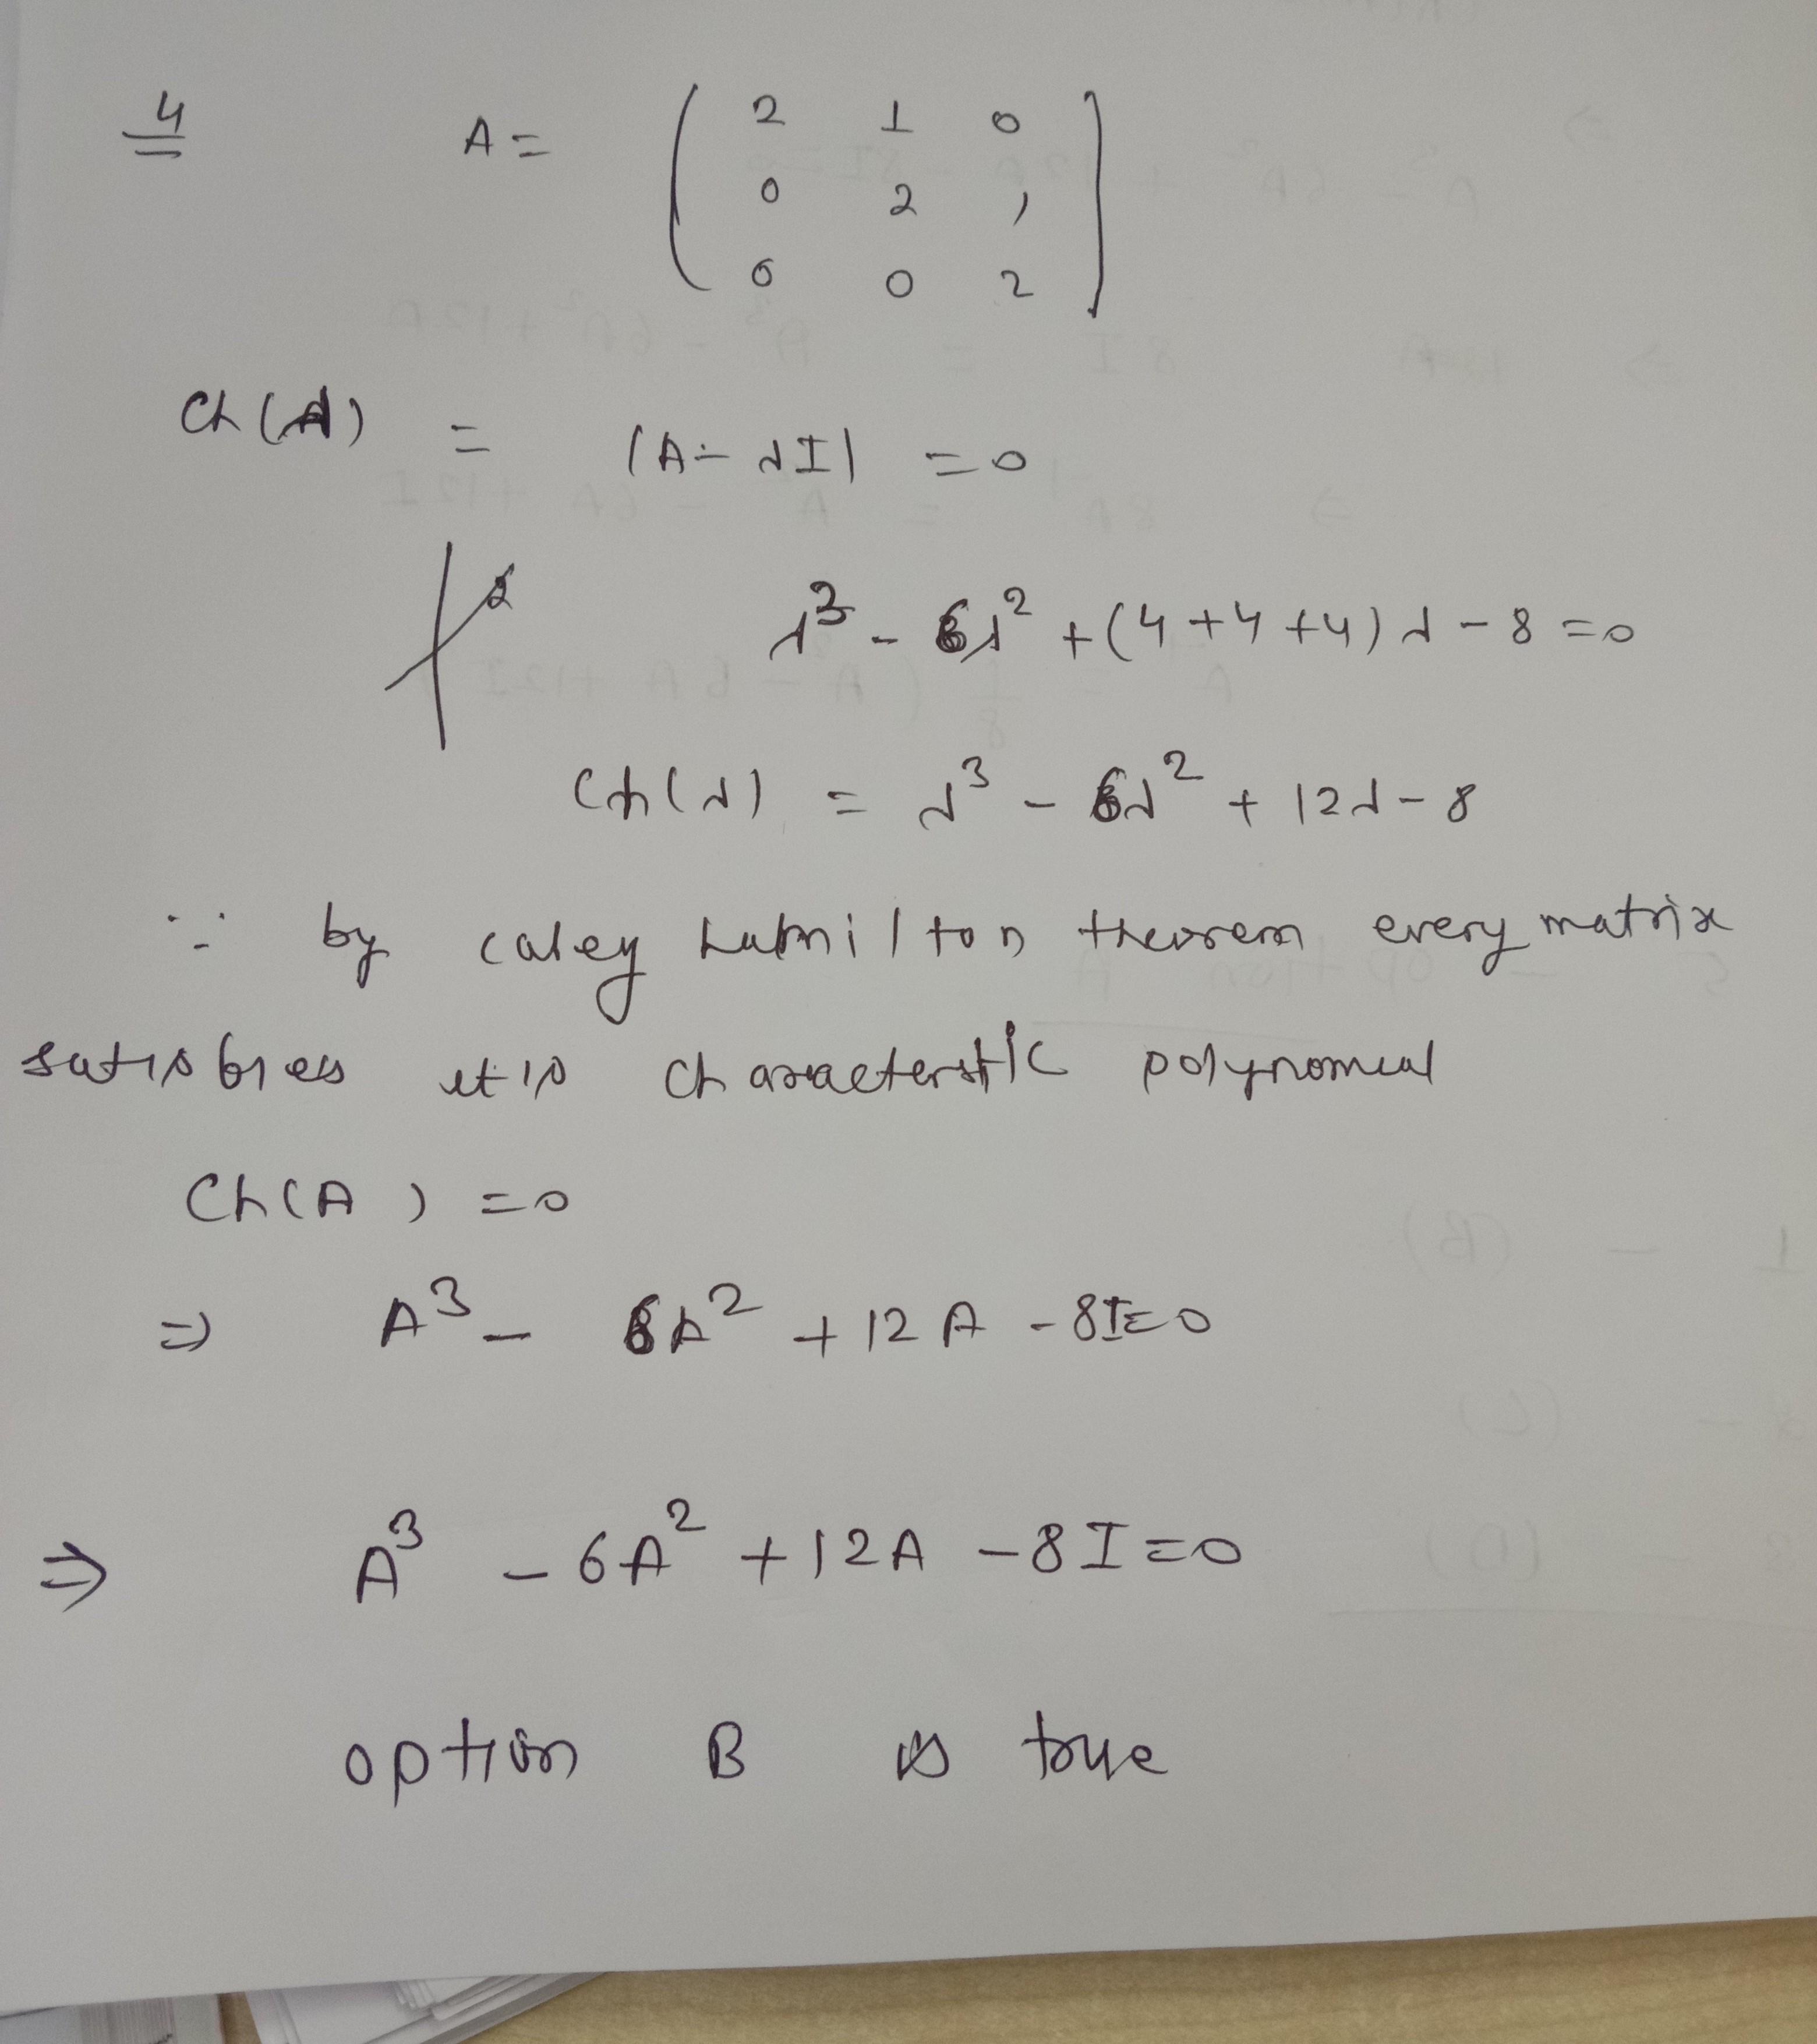 4 A = ( 2 1 0
0 2 1
0 0 2 )
Ch(A) = |A - λI| = 0
λ³ - 6λ² + (4+4+4)λ - 8 = 0
Ch(λ) = λ³ - 6λ² + 12λ - 8
∵ by caley hamilton theorem every matrix
satisfies it is characterstic polynomial
Ch(A) = 0
⇒ A³ - 6A² + 12A - 8I = 0
⇒ A³ - 6A² + 12A - 8I = 0
option B is true